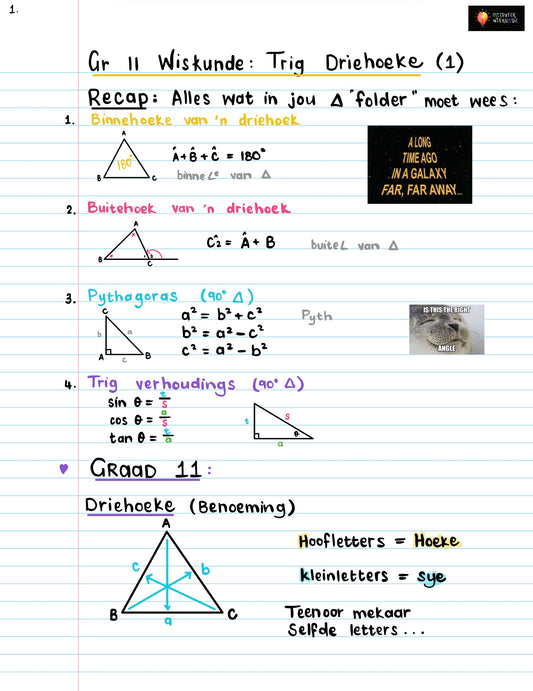 1.
Gr 11 Wiskunde: Trig Driehoeke (1)
Recap: Alles wat in jou Δ "folder" moet wees:
1. Binnehoeke van 'n driehoek
A
180°
B C
Â + B̂ + Ĉ = 180°
binne∠ᵉ van Δ
A LONG
TIME AGO
IN A GALAXY
FAR, FAR AWAY...
2. Buitehoek van 'n driehoek
A
B C
1 2
Ĉ₂ = Â + B
buite∠ van Δ
3. Pythagoras (90° Δ)
C
b a
A c B
a² = b² + c²
b² = a² - c²
c² = a² - b²
Pyth
IS THIS THE RIGHT
ANGLE
4. Trig verhoudings (90° Δ)
sin θ = t/s
cos θ = a/s
tan θ = t/a
t s θ
a
GRAAD 11:
Driehoeke (Benoeming)
A
c b
B a C
Hoofletters = Hoeke
kleinletters = sye
Teenoor mekaar
Selfde letters...